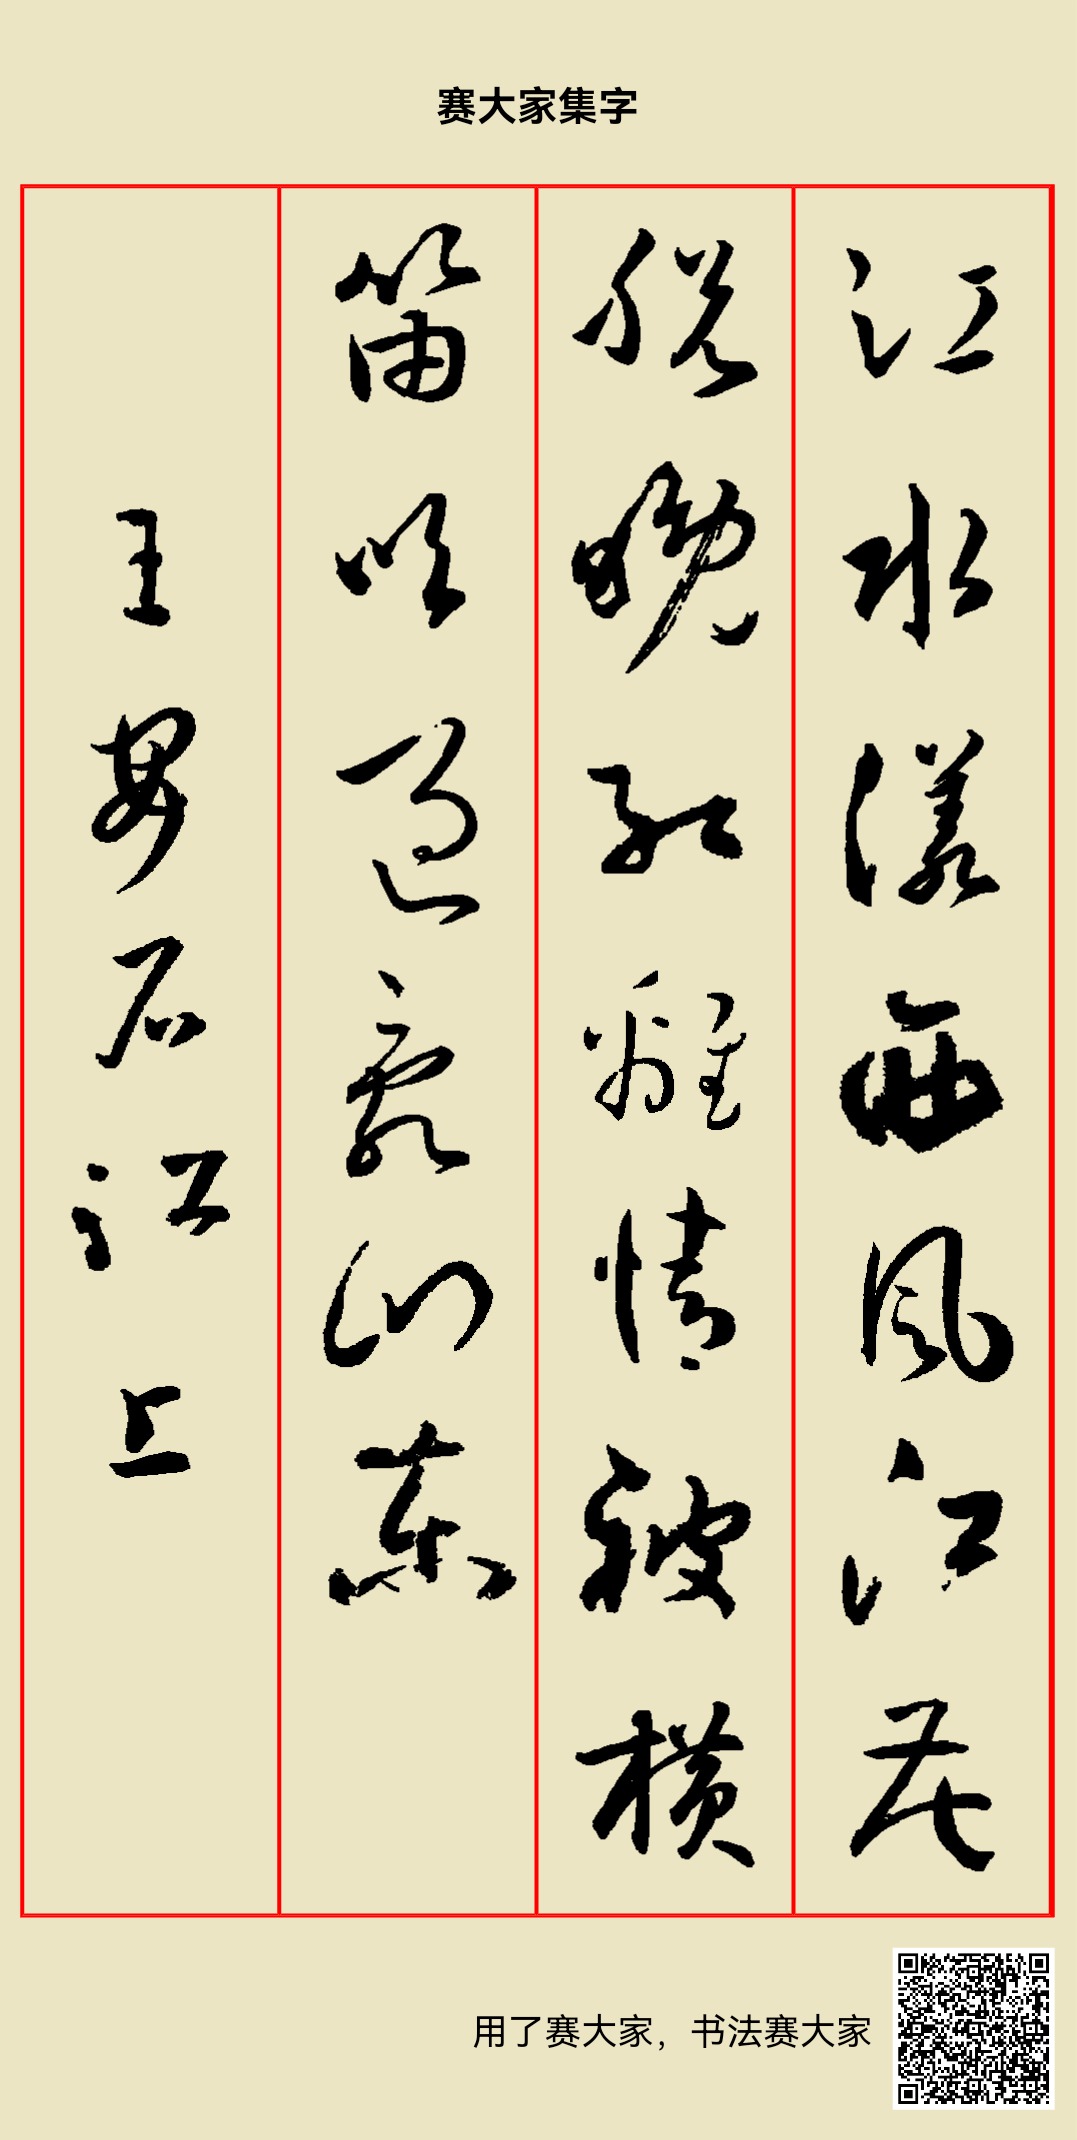 赛大家集字
江水漾西风江花
脱晚红離情被横
笛吹過亂山東
王安石江上
用了赛大家，书法赛大家